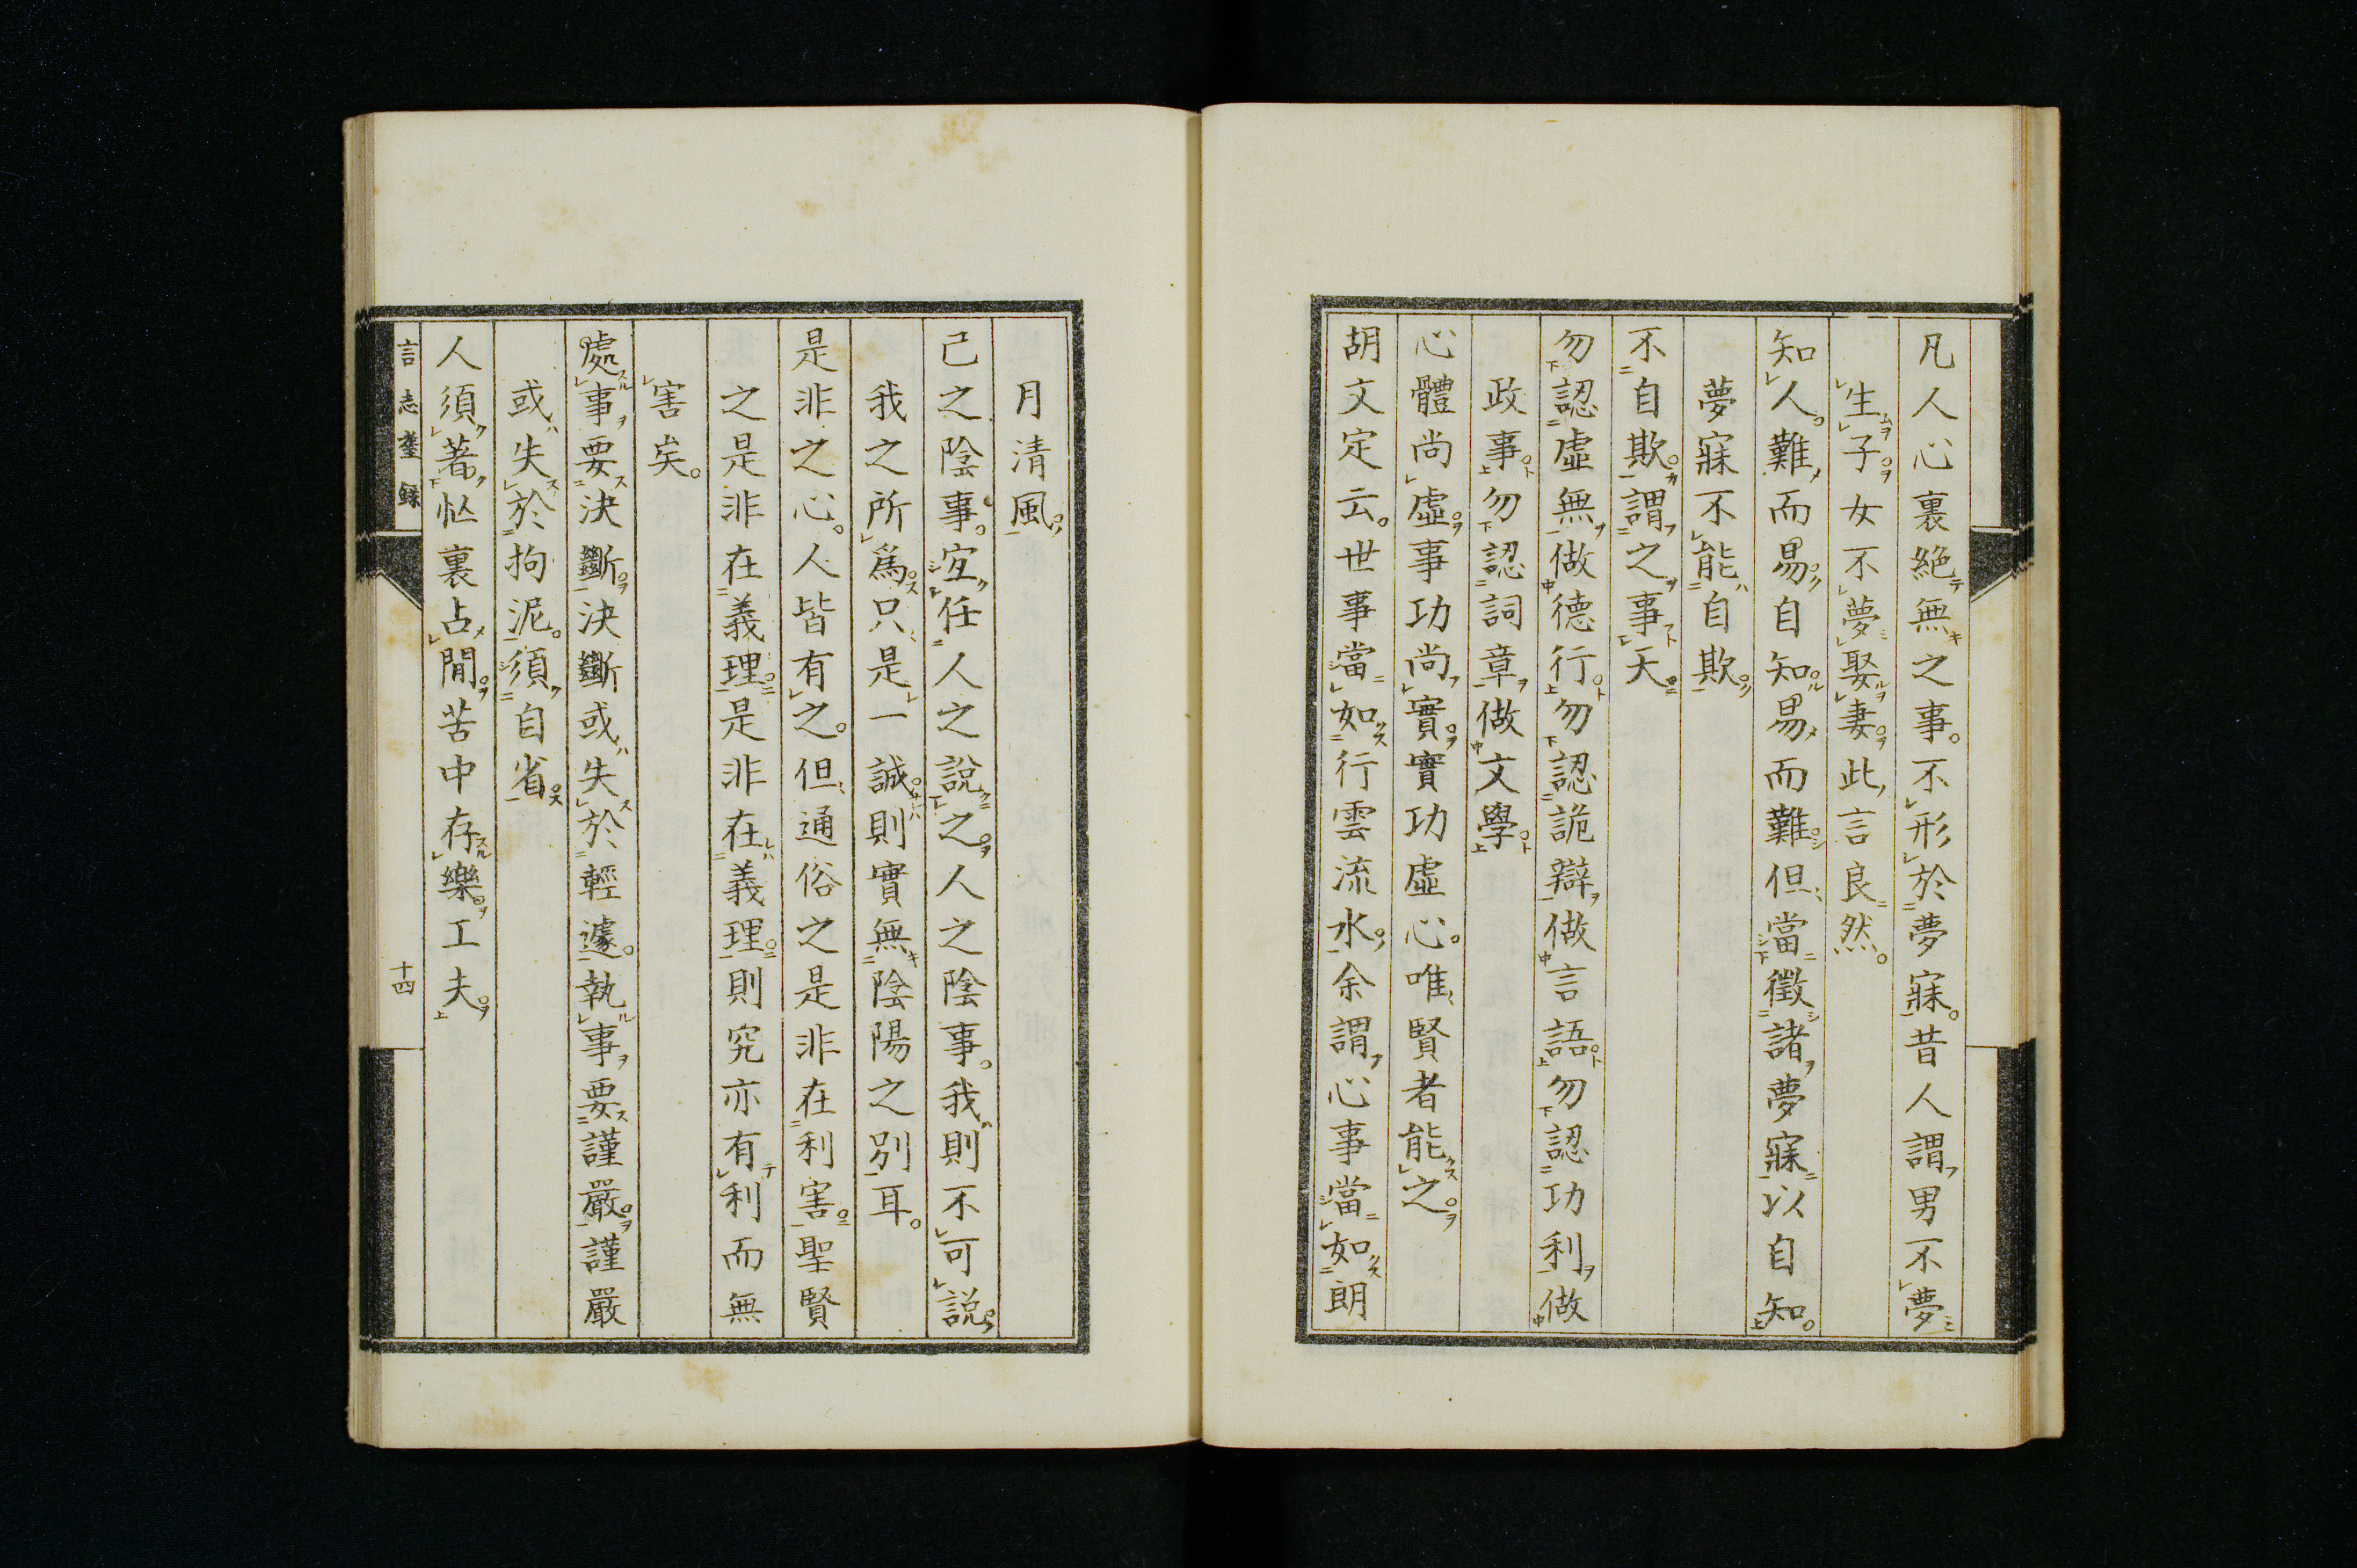 凡人心裏絶無之事。不形於夢寐。昔人謂男不夢
生子。女不夢娶妻。此言良然。
知人難而易。自知易而難。但當徵諸夢寐以自知。
夢寐不能自欺。
不自欺。謂之事天。
勿認虛無做德行。勿認詭辯做言語。勿認功利做
政事。勿認詞章做文學。
心體尚虛。事功尚實。實功虛心。唯賢者能之。
胡文定云。世事當如行雲流水。余謂心事當如朗
月清風。
己之陰事。宜任人之說之。人之陰事。我則不可說。
我之所爲只是一誠。則實無陰陽之別耳。
是非之心。人皆有之。但通俗之是非在利害。聖賢
之是非在義理。是非在義理。則究亦有利而無
害矣。
處事要決斷。決斷或失於輕遽。執事要謹嚴。謹嚴
或失於拘泥。須自省。
人須著忙裏占閒。苦中存樂工夫。
言志耋録
十四